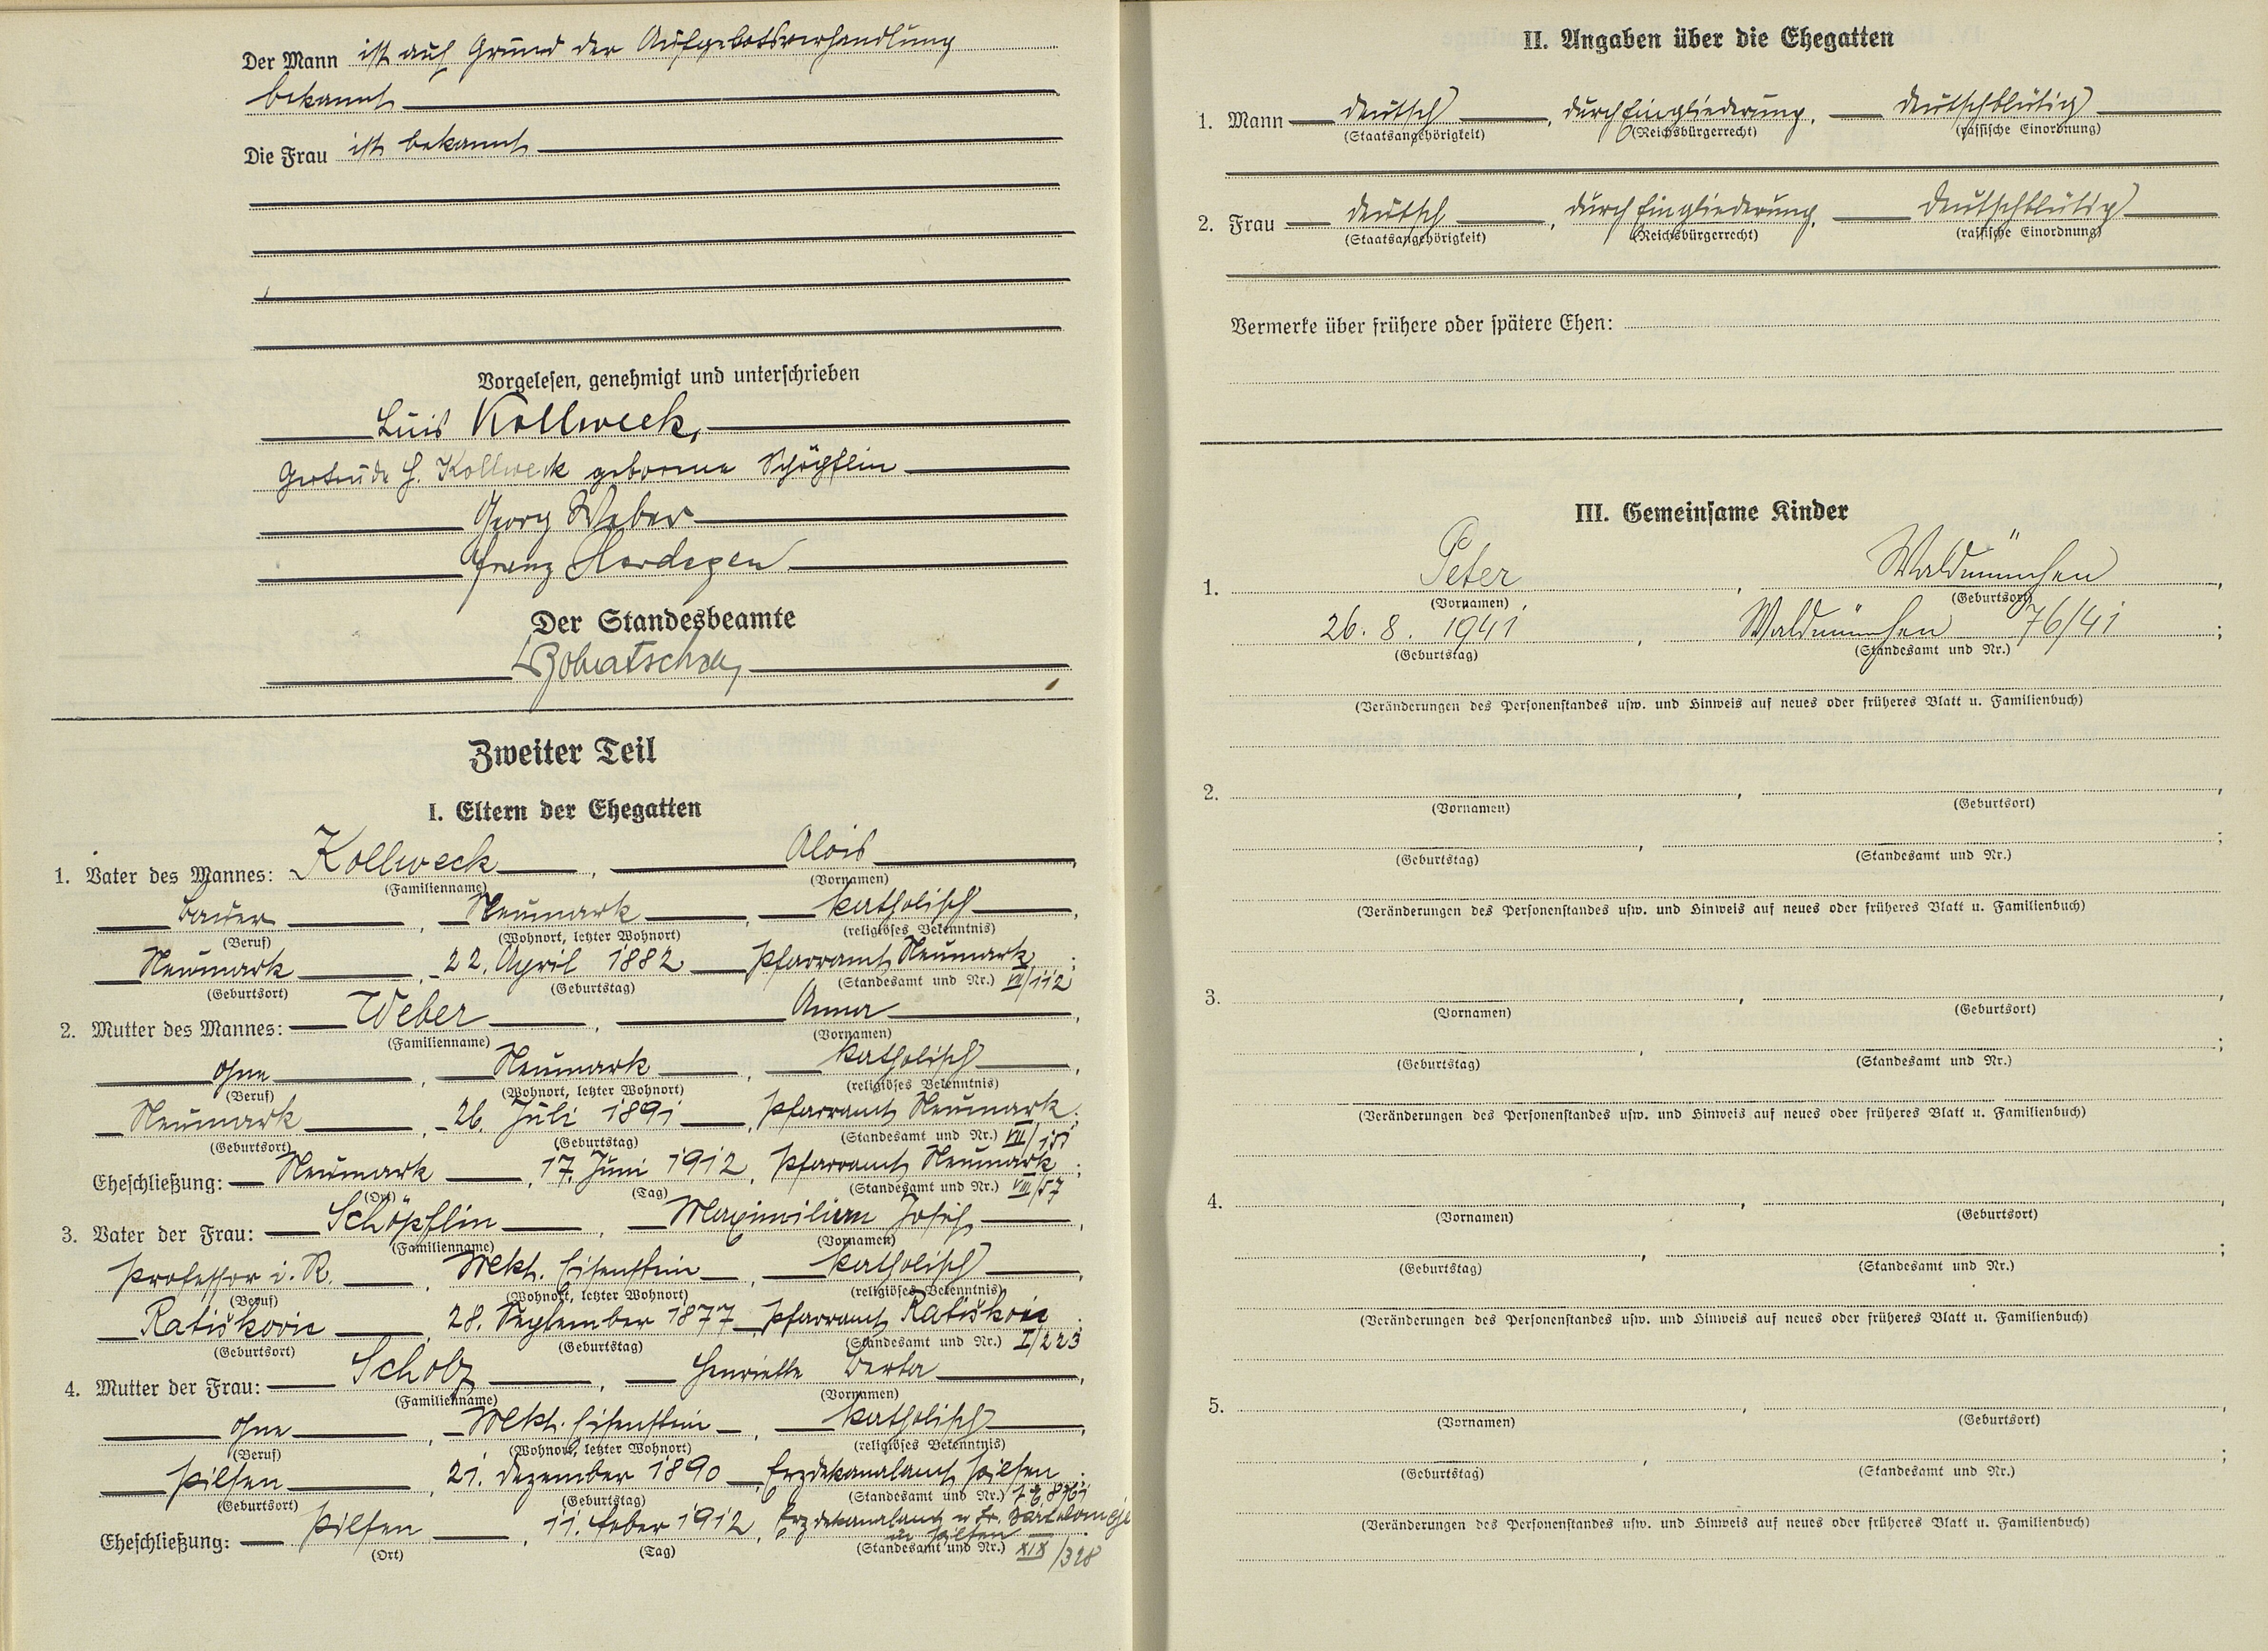 Der Mann ist auf Grund der Aufgebotsverhandlung
bekannt
Die Frau ist bekannt
Vorgelesen, genehmigt und unterschrieben
Luis Kollweck,
Gertrude H. Kollweck geborene Schöpflin
Georg Weber
Franz Hardegen
Der Standesbeamte
Zweiter Teil
I. Eltern der Ehegatten
1. Vater des Mannes: Kollweck, Alois,
(Familienname) (Vornamen)
Bauer, Neumark, katholisch,
(Beruf) (Wohnort, letzter Wohnort) (religiöses Bekenntnis)
Neumark, 22. April 1882 Pfarramt Neumark;
(Geburtsort) (Geburtstag) (Standesamt und Nr.) VII/112
2. Mutter des Mannes: Weber, Anna,
(Familienname) (Vornamen)
ohne, Neumark, katholisch,
(Beruf) (Wohnort, letzter Wohnort) (religiöses Bekenntnis)
Neumark, 26. Juli 1891, Pfarramt Neumark;
(Geburtsort) (Geburtstag) (Standesamt und Nr.) VII/
Eheschließung: Neumark, 17. Juni 1912, Pfarramt Neumark;
(Ort) (Tag) (Standesamt und Nr.) VIII/57
3. Vater der Frau: Schöpflin, Maximilian Josef,
(Familienname) (Vornamen)
Professor i. R., Mkt. Eisenstein, katholisch,
(Beruf) (Wohnort, letzter Wohnort) (religiöses Bekenntnis)
Ratiškovic, 28. September 1877 Pfarramt Ratiškovic;
(Geburtsort) (Geburtstag) (Standesamt und Nr.) I/223
4. Mutter der Frau: Scholz, Henriette Berta,
(Familienname) (Vornamen)
ohne, Mkt. Eisenstein, katholisch,
(Beruf) (Wohnort, letzter Wohnort) (religiöses Bekenntnis)
Pilsen, 21. Dezember 1890 Erzdekanalamt Pilsen;
(Geburtsort) (Geburtstag) (Standesamt und Nr.)
Eheschließung: Pilsen, 11. Feber 1912, Erzdekanalamt
in Pilsen
(Ort) (Tag) (Standesamt und Nr.) XIX/328
II. Angaben über die Ehegatten
1. Mann deutsch, durch Eingliederung, deutschblütig
(Staatsangehörigkeit) (Reichsbürgerrecht) (rassische Einordnung)
2. Frau deutsch, durch Eingliederung, deutschblütig
(Staatsangehörigkeit) (Reichsbürgerrecht) (rassische Einordnung)
Vermerke über frühere oder spätere Ehen:
III. Gemeinsame Kinder
1. Peter, Waldmünchen,
(Vornamen) (Geburtsort)
26. 8. 1941, Waldmünchen 76/41;
(Geburtstag) (Standesamt und Nr.)
(Veränderungen des Personenstandes usw. und Hinweis auf neues oder früheres Blatt u. Familienbuch)
2. , ,
(Vornamen) (Geburtsort)
, ;
(Geburtstag) (Standesamt und Nr.)
(Veränderungen des Personenstandes usw. und Hinweis auf neues oder früheres Blatt u. Familienbuch)
3. , ,
(Vornamen) (Geburtsort)
, ;
(Geburtstag) (Standesamt und Nr.)
(Veränderungen des Personenstandes usw. und Hinweis auf neues oder früheres Blatt u. Familienbuch)
4. , ,
(Vornamen) (Geburtsort)
, ;
(Geburtstag) (Standesamt und Nr.)
(Veränderungen des Personenstandes usw. und Hinweis auf neues oder früheres Blatt u. Familienbuch)
5. , ,
(Vornamen) (Geburtsort)
, ;
(Geburtstag) (Standesamt und Nr.)
(Veränderungen des Personenstandes usw. und Hinweis auf neues oder früheres Blatt u. Familienbuch)